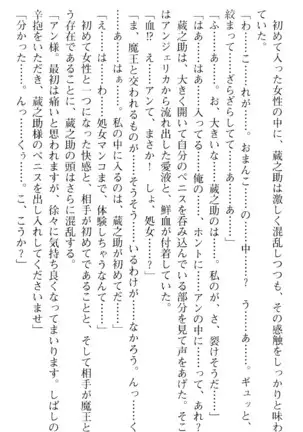 初めて入った女性の中に、蔵之助は激しく混乱しつつも、その感触をしっかりと味わ
っていた。
「わ……こ、これが……。おまんこ……の……中……？　う……あ……。ギュッと、
絞まって……ざらざらしてて……あ……あ……」
「ふ……あ……。お、大きいな……蔵之助のは……。私のが、さ、裂けそうだ……」
「あ……あ……入ってる……俺の……、ホントに……アンの中に……って、あれ？
　蔵之助は、大きく開いて自分のペニスを呑み込んでいる部分を見て声をあげた。そこ
はアンジェリカから流れ出した愛液と、鮮血が付着していた。
「血!?　え……アンて、まさか！　しょ、処女……？」
「あ……はぁ……。私の中に入るのは、蔵之助が初めてだ……んっ……く……ふ
ぅ……。ま、魔王と交われるものが……そうそう……いるわけが……なかろう。んっ…
「え……はわ……。処女マンコまで、体験しちゃうなんて……」
　初めて女性と一つになった快感と、相手が初めてであること、そして相手が魔王と
う存在であることに、蔵之助の頭はさらに混乱する。
「アン様、最初は痛いと思われますが、徐々に気持ち良くなってまいります。しばしの
辛抱をいただき、蔵之助様のペニスを出し入れしてくださいませ」
「分かった……。んっ……くぅ……。こ、こうか？」